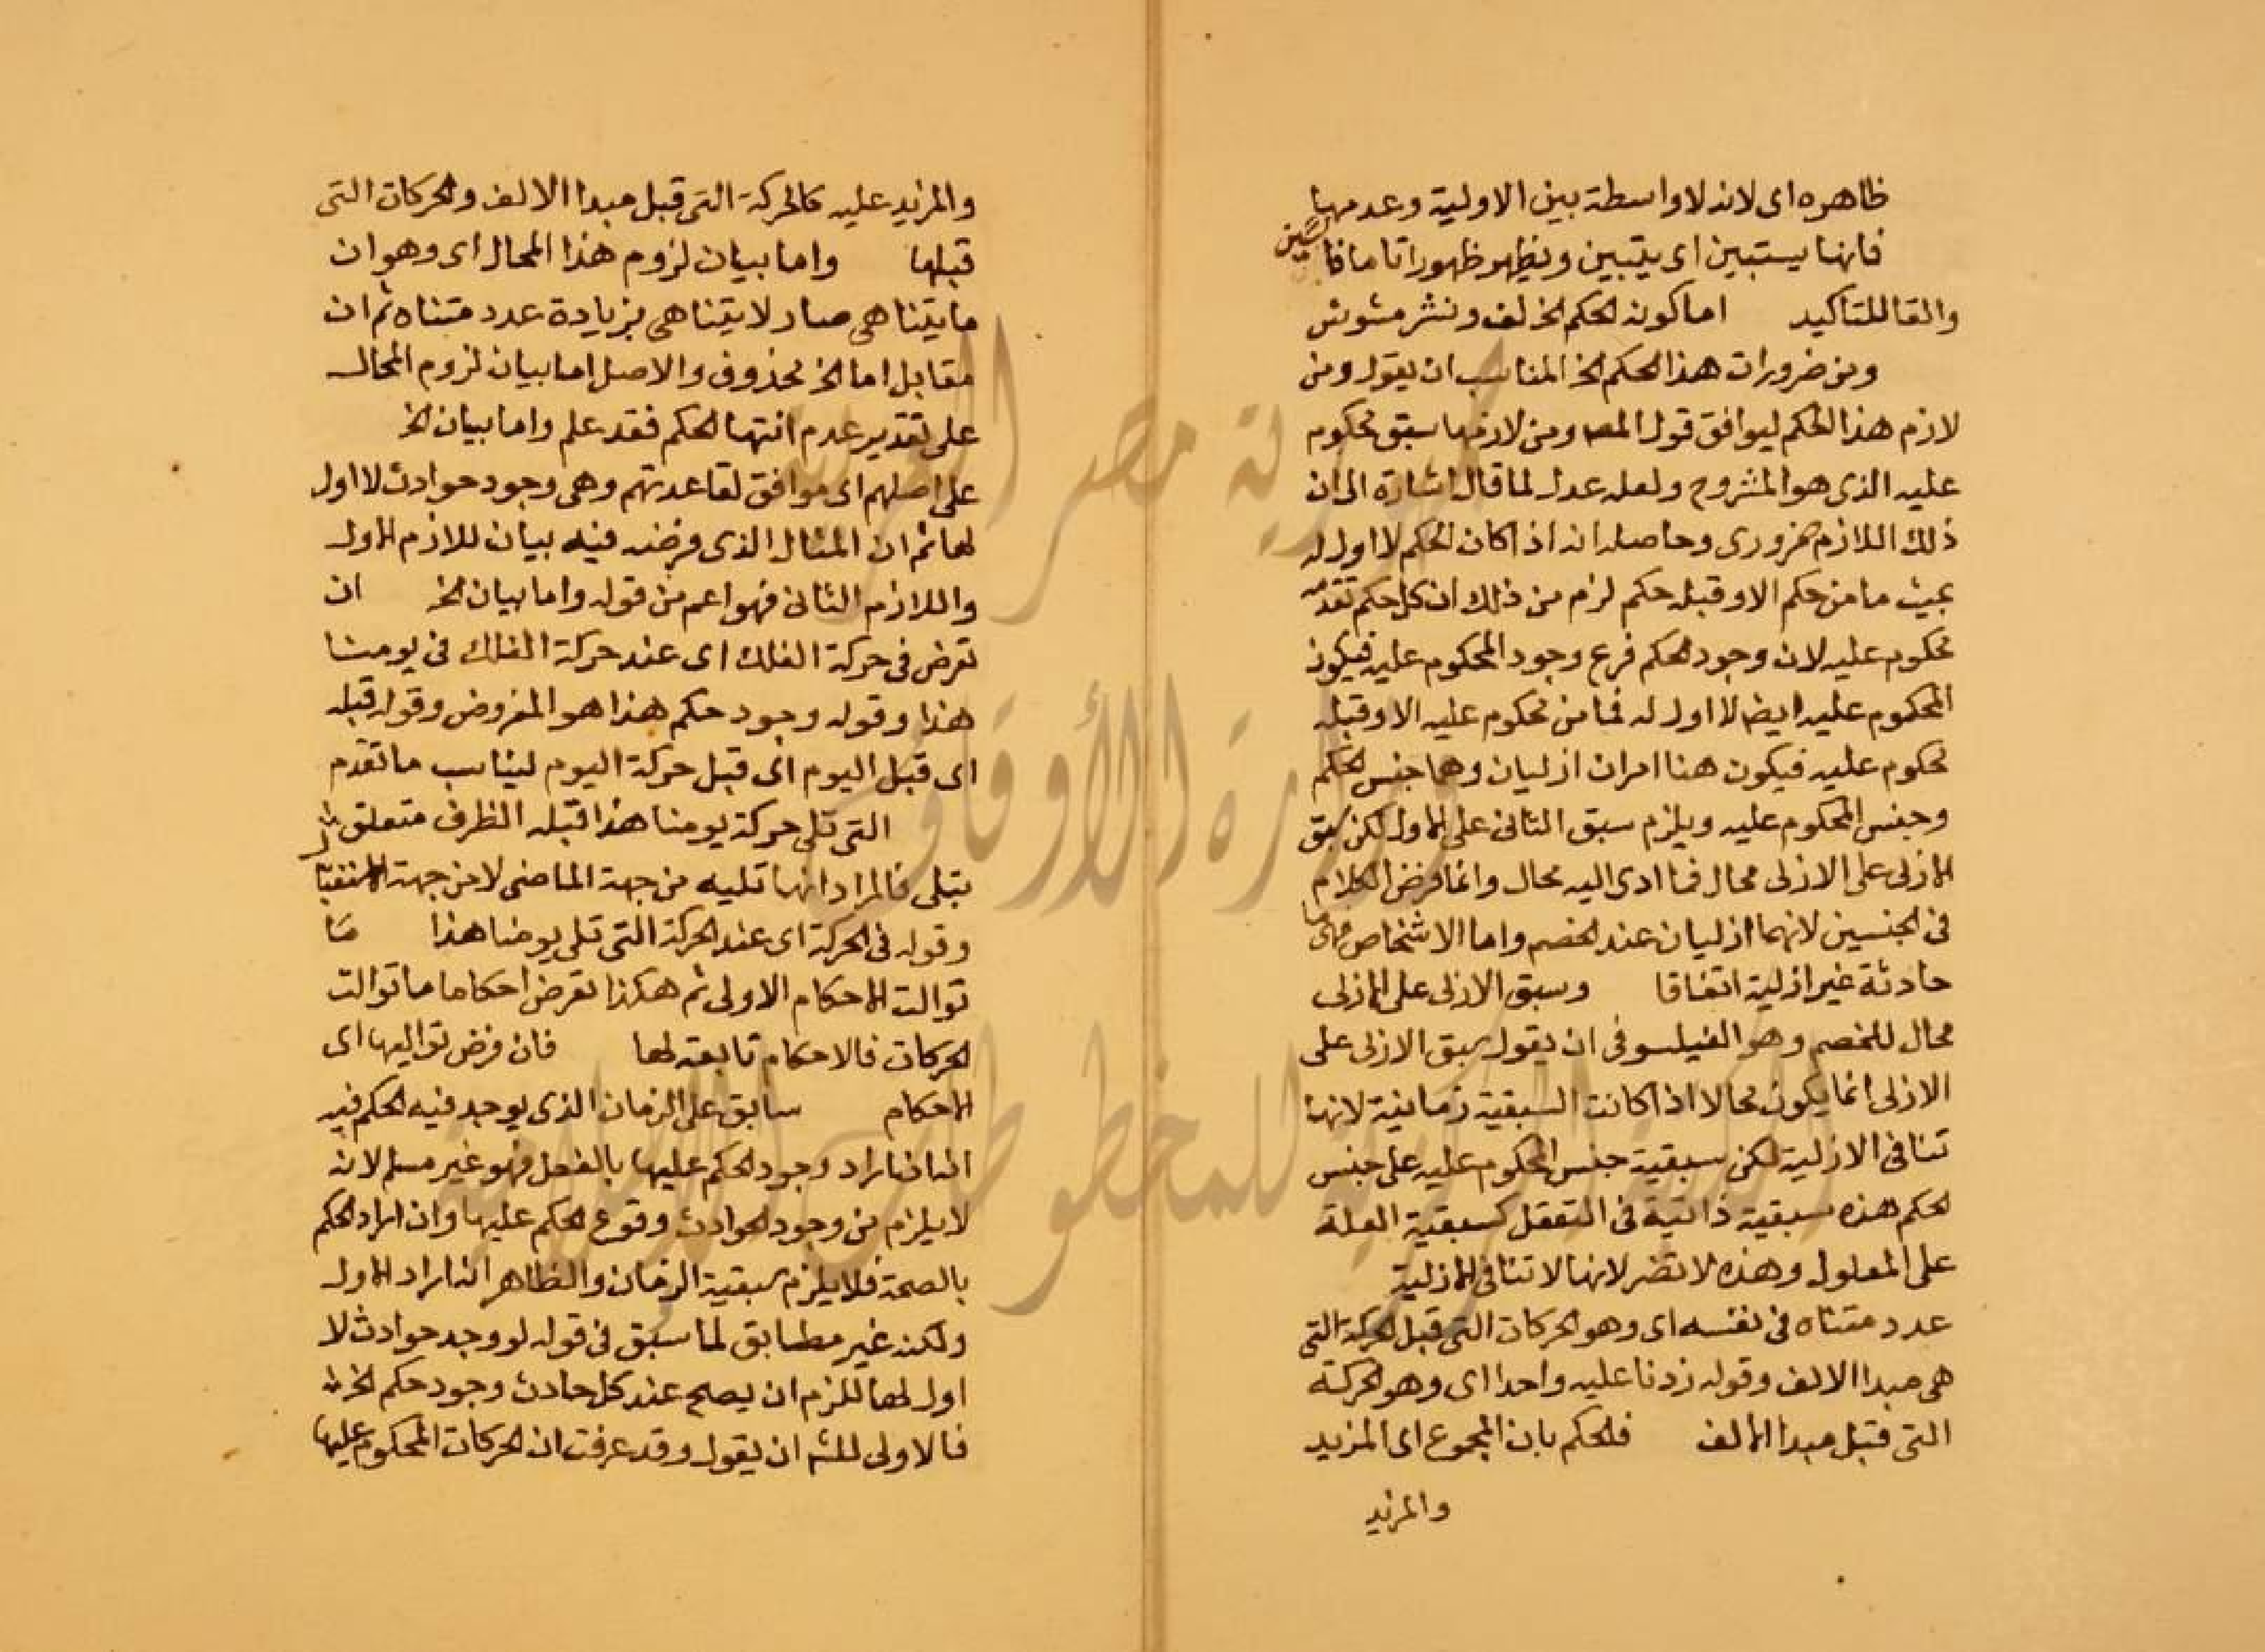 ظاهره اى لانه لا واسطة بين الاولية وعدمها
فانها يستبين اى يتبين ويظهر ظهورا تاما فالسين
والتا للتاكيد اما كون الحكم الخ لف ونشر مشوش
ومن ضرورات هذا الحكم الخ المناسب ان يقول ومن
لازم هذا الحكم ليوافق قول المصـ ومن لازمها سبق محكوم
عليه الذى هو المشروح ولعله عدل لما قال اشارة الى ان
ذلك اللازم ضرورى وحاصله انه اذا كان الحكم لا اول له
بحيث ما من حكم الا وقبله حكم لزم من ذلك ان كل حكم تقدمه
محكوم عليه لان وجود الحكم فرع وجود المحكوم عليه فيكون
المحكوم عليه ايضا لا اول له فما من محكوم عليه الا وقبله
محكوم عليه فيكون هنا امران ازليان وهما جنس الحكم
وجنس المحكوم عليه ويلزم سبق الثانى على الاول لكن سبق
الازلى على الازلى محال فما ادى اليه محال وانما فرض الكلام
فى الجنسين لانهما ازليان عند الخصم واما الاشخاص منهما فهى
حادثة غير ازلية اتفاقا وسبق الازلى على الازلى
محال للخصم وهو الفيلسوفى ان يقول سبق الازلى على
الازلى انما يكون محالا اذا كانت السبقية زمانية لانها
تنافى الازلية لكن سبقية جنس المحكوم عليه على جنس
الحكم هذه سبقية ذاتية فى التعقل كسبقية العلة
على المعلول وهذه لا تضر لانها لا تنافى الازلية
عدد متناه فى نفسه اى وهو الحركات التى قبل الحركة التى
هى مبدا الالف وقوله زدنا عليه واحدا اى وهو الحركة
التى قبل مبدا الالف فالحكم بان المجموع اى المزيد
والمزيد
والمزيد عليه كالحركة التى قبل مبدا الالف والحركات التى
قبلها واما بيان لزوم هذا المحال اى وهو ان
ما يتناهى صار لا يتناهى بزيادة عدد متناه ثم ان
مقابل اما الخ محذوف والاصل اما بيان لزوم المحال
على تقدير عدم انتها الحكم فقد علم واما بيان الخ
على اصلهم اى موافق لقاعدتهم وهى وجود حوادث لا اول
لها ثم ان المثال الذى فرضه فيه بيان للازم الاول
واللازم الثانى فهو اعم من قوله واما بيان الخ ان
تعرض فى حركة الفلك اى عند حركة الفلك فى يومنا
هذا وقوله وجود حكم هذا هو المفروض وقوله قبله
اى قبل اليوم اى قبل حركة اليوم ليناسب ما تقدم
التى تلى حركة يومنا هذا قبله الظرف متعلق
بتلى فالمراد انها تليه من جهة الماضى لا من جهة المستقبل
وقوله فى الحركة اى عند الحركة التى تلى يومنا هذا ما
توالت الاحكام الاولى ثم هكذا تعرض احكاما ما توالت
الحركات فالاحكام تابعة لها فان فرض تواليها اى
الاحكام سابق على الزمان الذى يوجد فيه الحكم فيه
انه ان اراد وجود الحكم عليها بالفعل فهو غير مسلم لانه
لا يلزم من وجود الحوادث وقوع الحكم عليها وان اراد الحكم
بالصحة فلا يلزم سبقية الزمان والظاهر انه اراد الاول
ولكنه غير مطابق لما سبق فى قوله لو وجد حوادث لا
اول لها للزم ان يصح عند كل حادث وجود حكم الخ
فالاولى للشـ ان يقول وقد عرفت ان الحركات المحكوم عليها